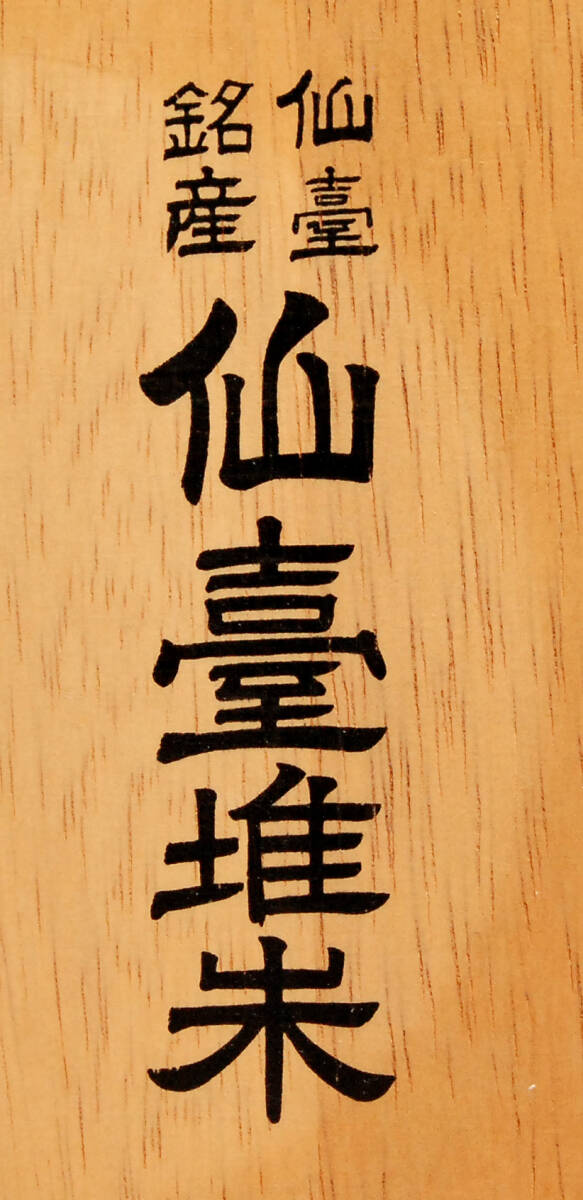 仙臺
銘産
仙臺堆朱